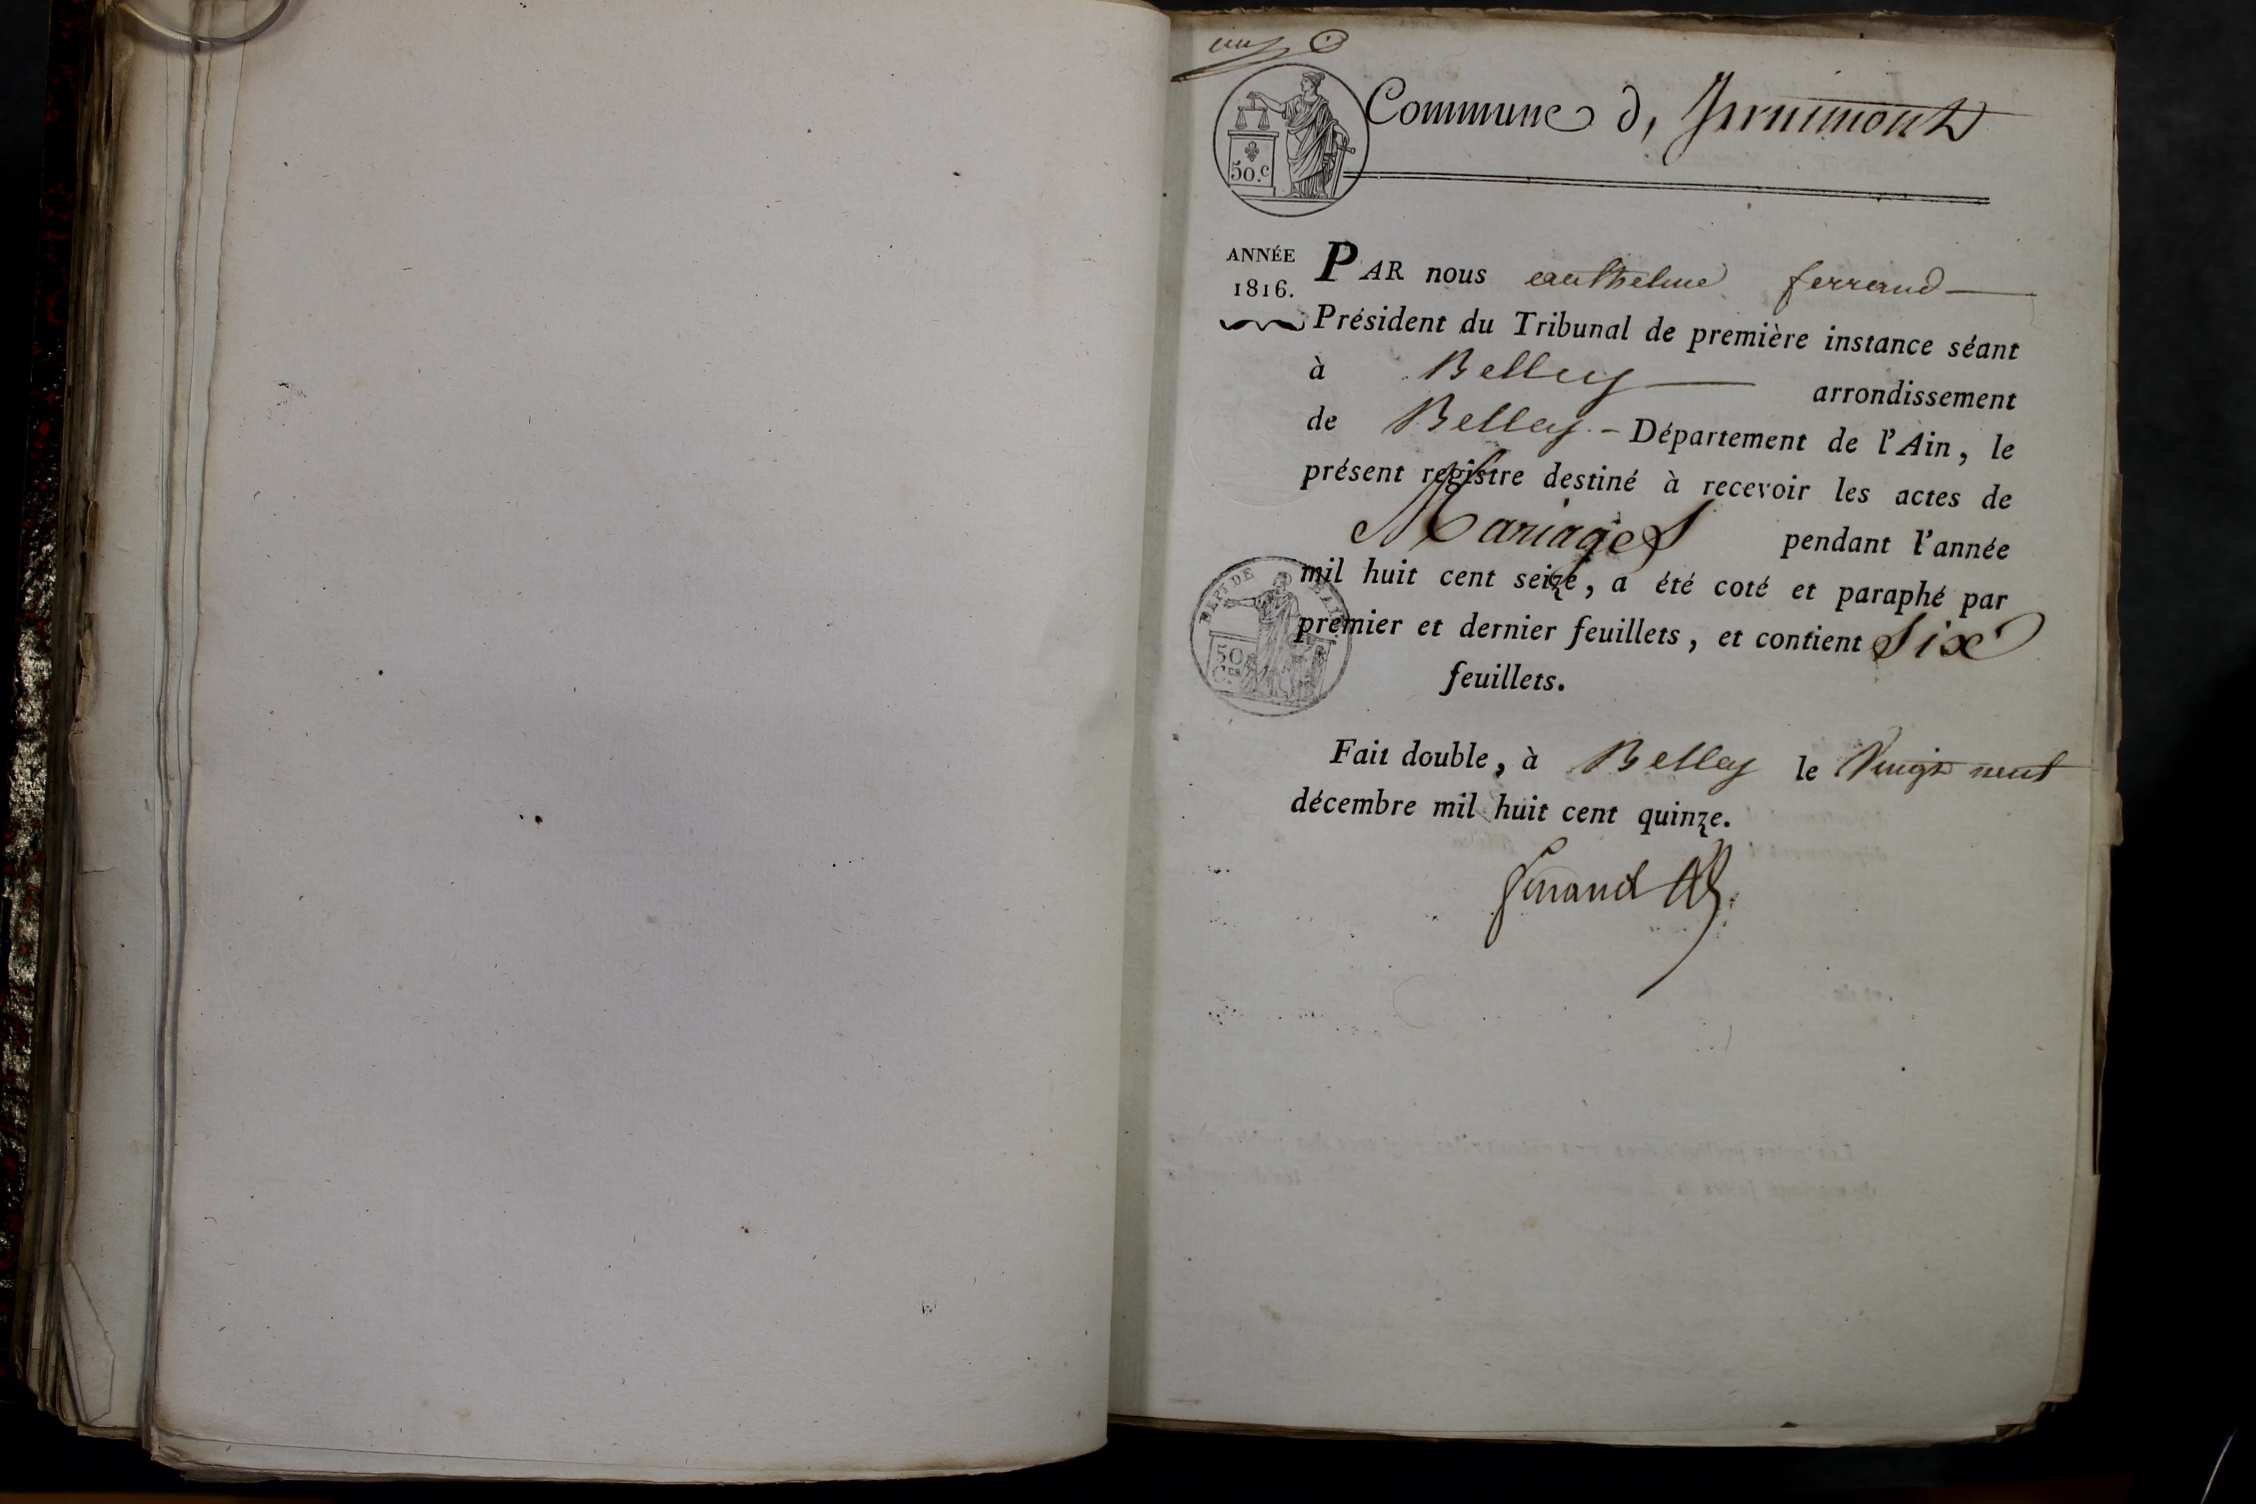 Commune d,
50.c
ANNÉE
1816.
PAR nous anthelme ferrand
Président du Tribunal de première instance séant
à Belley arrondissement
de Belley - Département de l'Ain, le
présent registre destiné à recevoir les actes de
Mariages pendant l'année
mil huit cent seize, a été coté et paraphé par
premier et dernier feuillets, et contient Six
feuillets.
DEPT DE L'AIN
50
Ces
Fait double, à Belley le Vingt neuf
décembre mil huit cent quinze.
ferrand